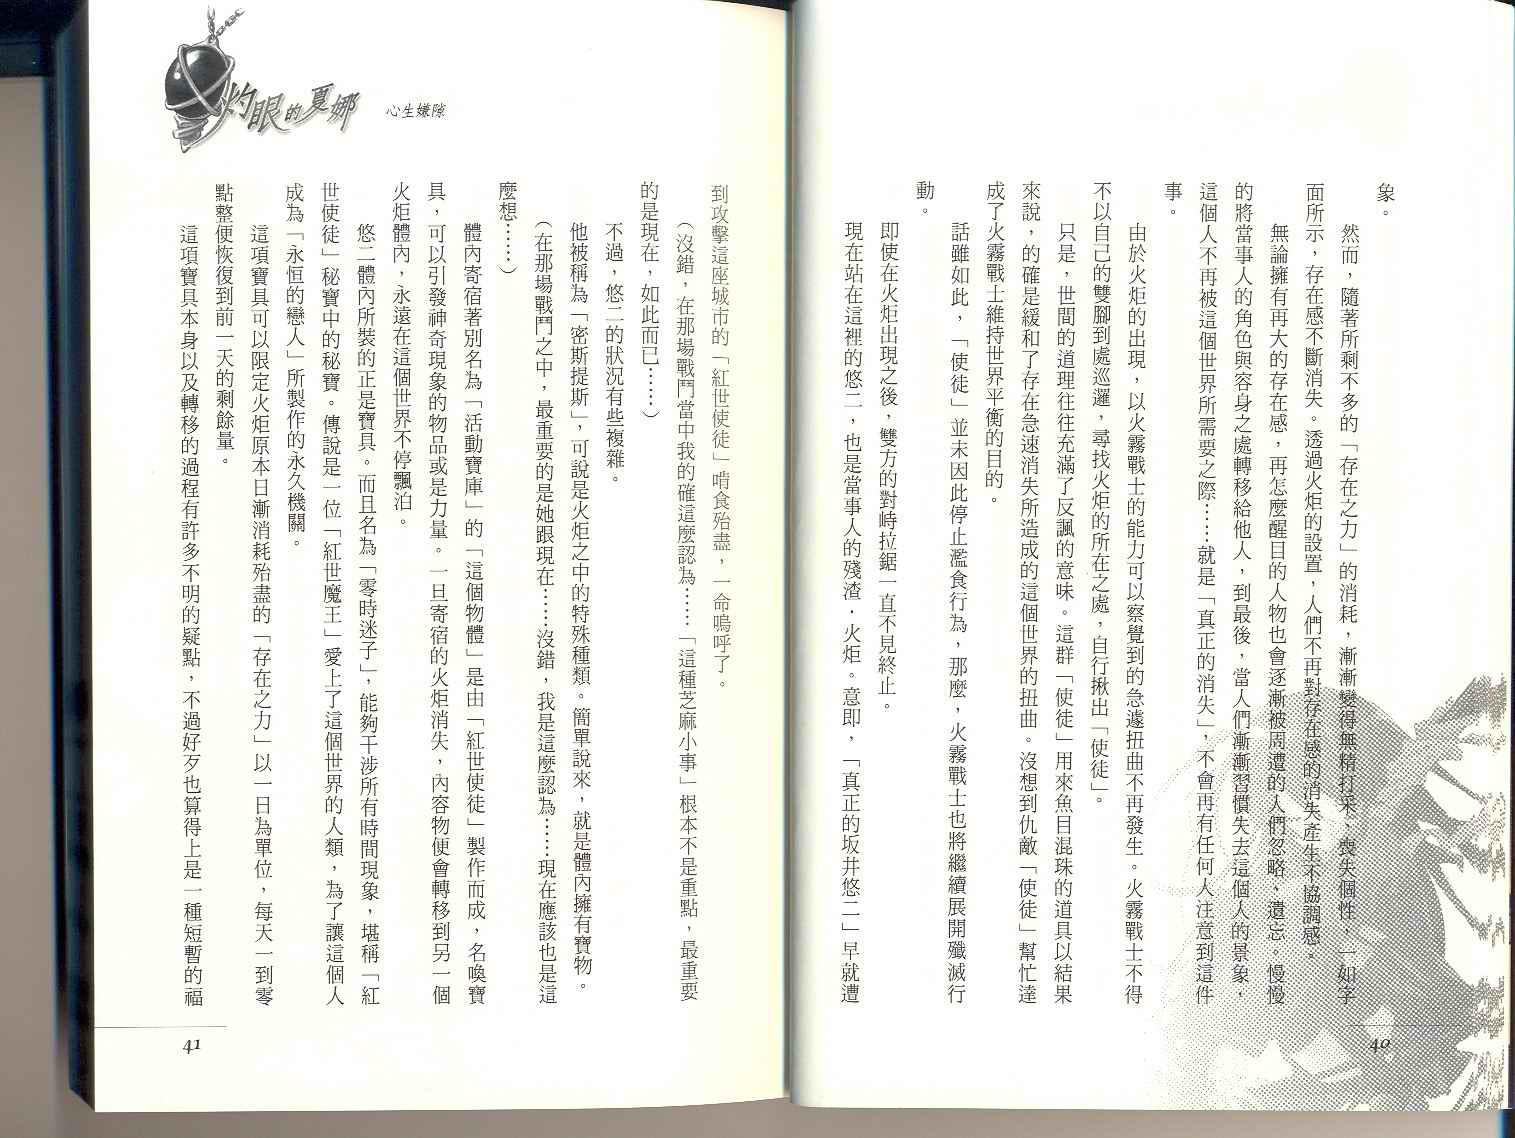 象。
然而，隨著所剩不多的「存在之力」的消耗，漸漸變得無精打采、喪失個性，一如字
面所示，存在感不斷消失。透過火炬的設置，人們不再對存在感的消失產生不協調感。
無論擁有再大的存在感，再怎麼醒目的人物也會逐漸被周遭的人們忽略、遺忘。慢慢
的將當事人的角色與容身之處轉移給他人，到最後，當人們漸漸習慣失去這個人的景象，
這個人不再被這個世界所需要之際……就是「真正的消失」，不會再有任何人注意到這件
事。
由於火炬的出現，以火霧戰士的能力可以察覺到的急遽扭曲不再發生。火霧戰士不得
不以自己的雙腳到處巡邏，尋找火炬的所在之處，自行揪出「使徒」。
只是，世間的道理往往充滿了反諷的意味。這群「使徒」用來魚目混珠的道具以結果
來說，的確是緩和了存在急速消失所造成的這個世界的扭曲。沒想到仇敵「使徒」幫忙達
成了火霧戰士維持世界平衡的目的。
話雖如此，「使徒」並未因此停止濫食行為，那麼，火霧戰士也將繼續展開殲滅行
動。
即使在火炬出現之後，雙方的對峙拉鋸一直不見終止。
現在站在這裡的悠二，也是當事人的殘渣．火炬。意即，「真正的坂井悠二」早就遭
40
灼眼的夏娜 心生嫌隙
到攻擊這座城市的「紅世使徒」啃食殆盡，一命嗚呼了。
（沒錯，在那場戰鬥當中我的確這麼認為……「這種芝麻小事」根本不是重點，最重要
的是現在，如此而已……）
不過，悠二的狀況有些複雜。
他被稱為「密斯提斯」，可說是火炬之中的特殊種類。簡單說來，就是體內擁有寶物。
（在那場戰鬥之中，最重要的是她跟現在……沒錯，我是這麼認為……現在應該也是這
麼想……）
體內寄宿著別名為「活動寶庫」的「這個物體」是由「紅世使徒」製作而成，名喚寶
具，可以引發神奇現象的物品或是力量。一旦寄宿的火炬消失，內容物便會轉移到另一個
火炬體內，永遠在這個世界不停飄泊。
悠二體內所裝的正是寶具。而且名為「零時迷子」，能夠干涉所有時間現象，堪稱「紅
世使徒」秘寶中的秘寶。傳說是一位「紅世魔王」愛上了這個世界的人類，為了讓這個人
成為「永恒的戀人」所製作的永久機關。
這項寶具可以限定火炬原本日漸消耗殆盡的「存在之力」以一日為單位，每天一到零
點整便恢復到前一天的剩餘量。
這項寶具本身以及轉移的過程有許多不明的疑點，不過好歹也算得上是一種短暫的福
41